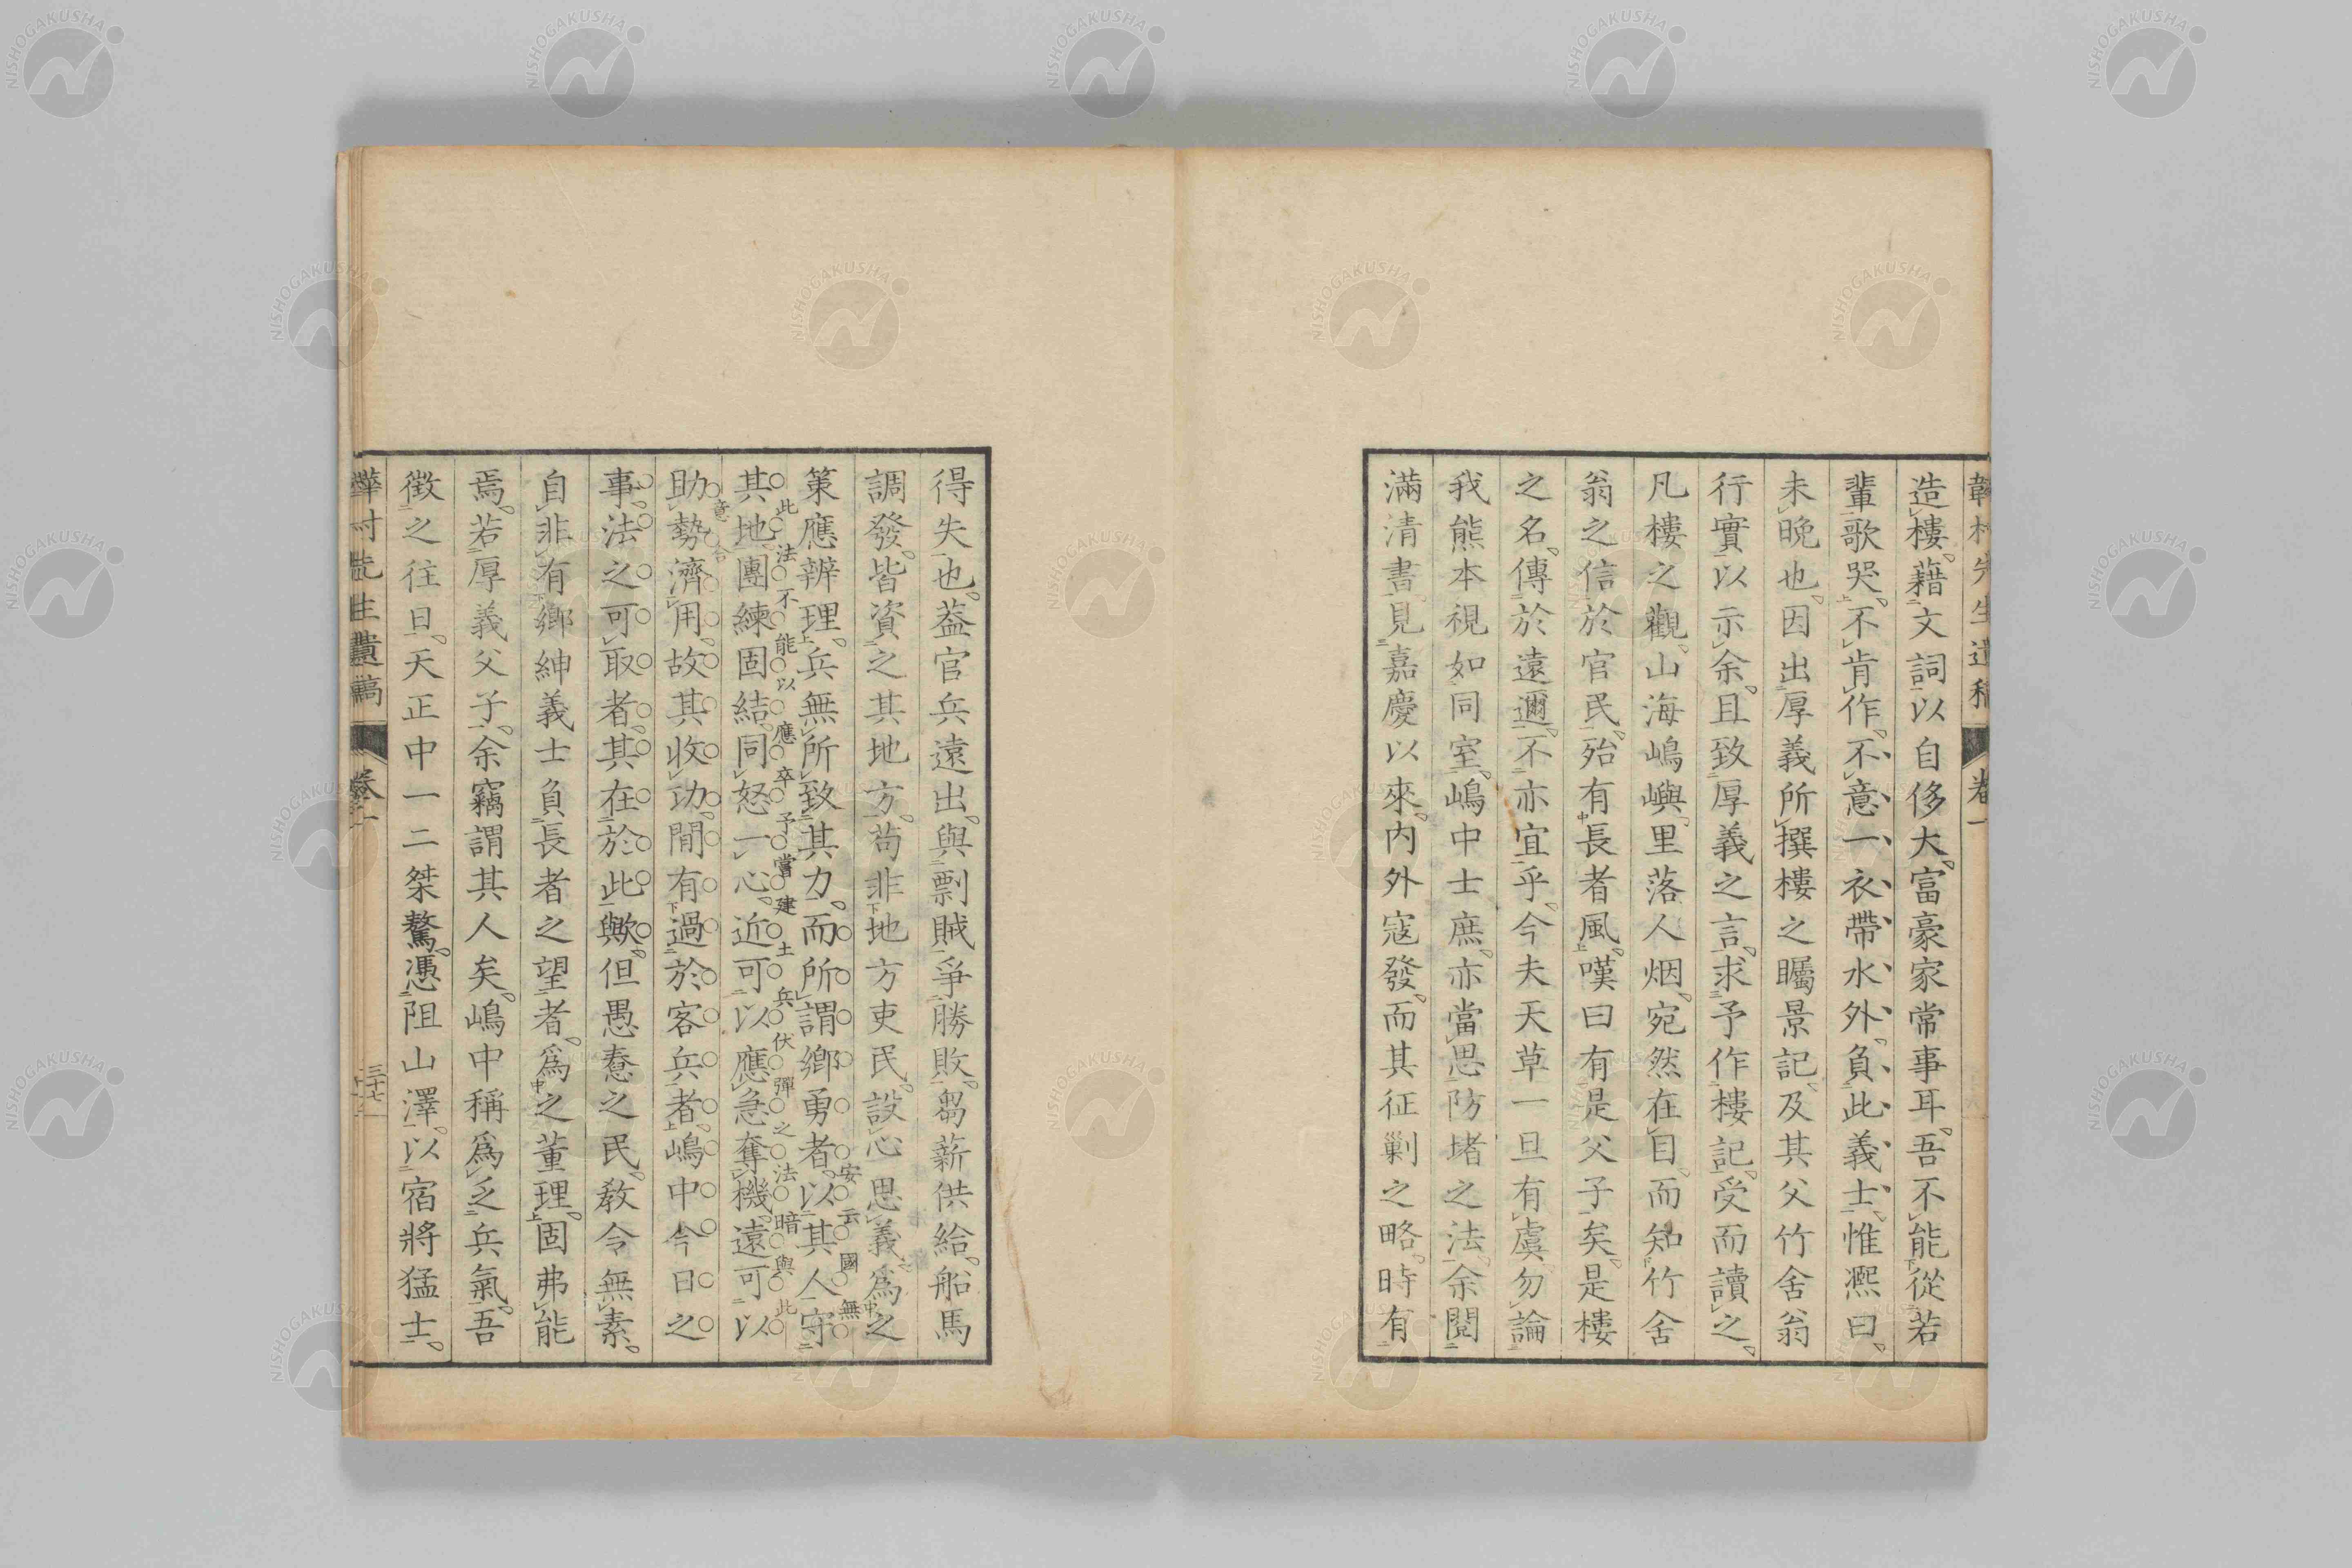 韡村先生遺稿 卷一
造樓。藉文詞以自侈大。富豪家常事耳。吾不能從若
輩歌哭。不肯作。不意一衣帶水外。負此義士。惟凞曰。
未晩也。因出厚義所撰樓之矚景記。及其父竹舍翁
行實以示余。且致厚義之言。求予作樓記。受而讀之。
凡樓之觀。山海嶋嶼。里落人烟。宛然在目。而知竹舍
翁之信於官民。殆有長者風。嘆曰有是父子矣。是樓
之名。傳於遠邇。不亦宜乎。今夫天草一旦有虞。勿論
我熊本視如同室。嶋中士庶。亦當思防堵之法。余閱
滿清書。見嘉慶以來。內外寇發。而其征剿之略。時有
得失也。葢官兵遠出。與剽賊爭勝敗。芻薪供給。船馬
調發。皆資之其地方。苟非地方吏民。設心思義。爲之
策應辨理。兵無所致其力。而所謂鄉勇者。以其人守
安云國無
此法不能以應卒予嘗建土兵伏彈之法暗與此
其地。團練固結。同怒一心。近可以應急奪機。遠可以
意合
助勢濟用。故其收功。間有過於客兵者。嶋中今日之
事。法之可取者。其在於此歟。但愚惷之民。教令無素。
自非有鄉紳義士負長者之望者。爲之董理。固弗能
焉。若厚義父子。余竊謂其人矣。嶋中稱爲乏兵氣。吾
徵之往旦。天正中一二桀驁。憑阻山澤。以宿將猛士。
韡村先生遺稿 卷一 三十七
NISHOGAKUSHA